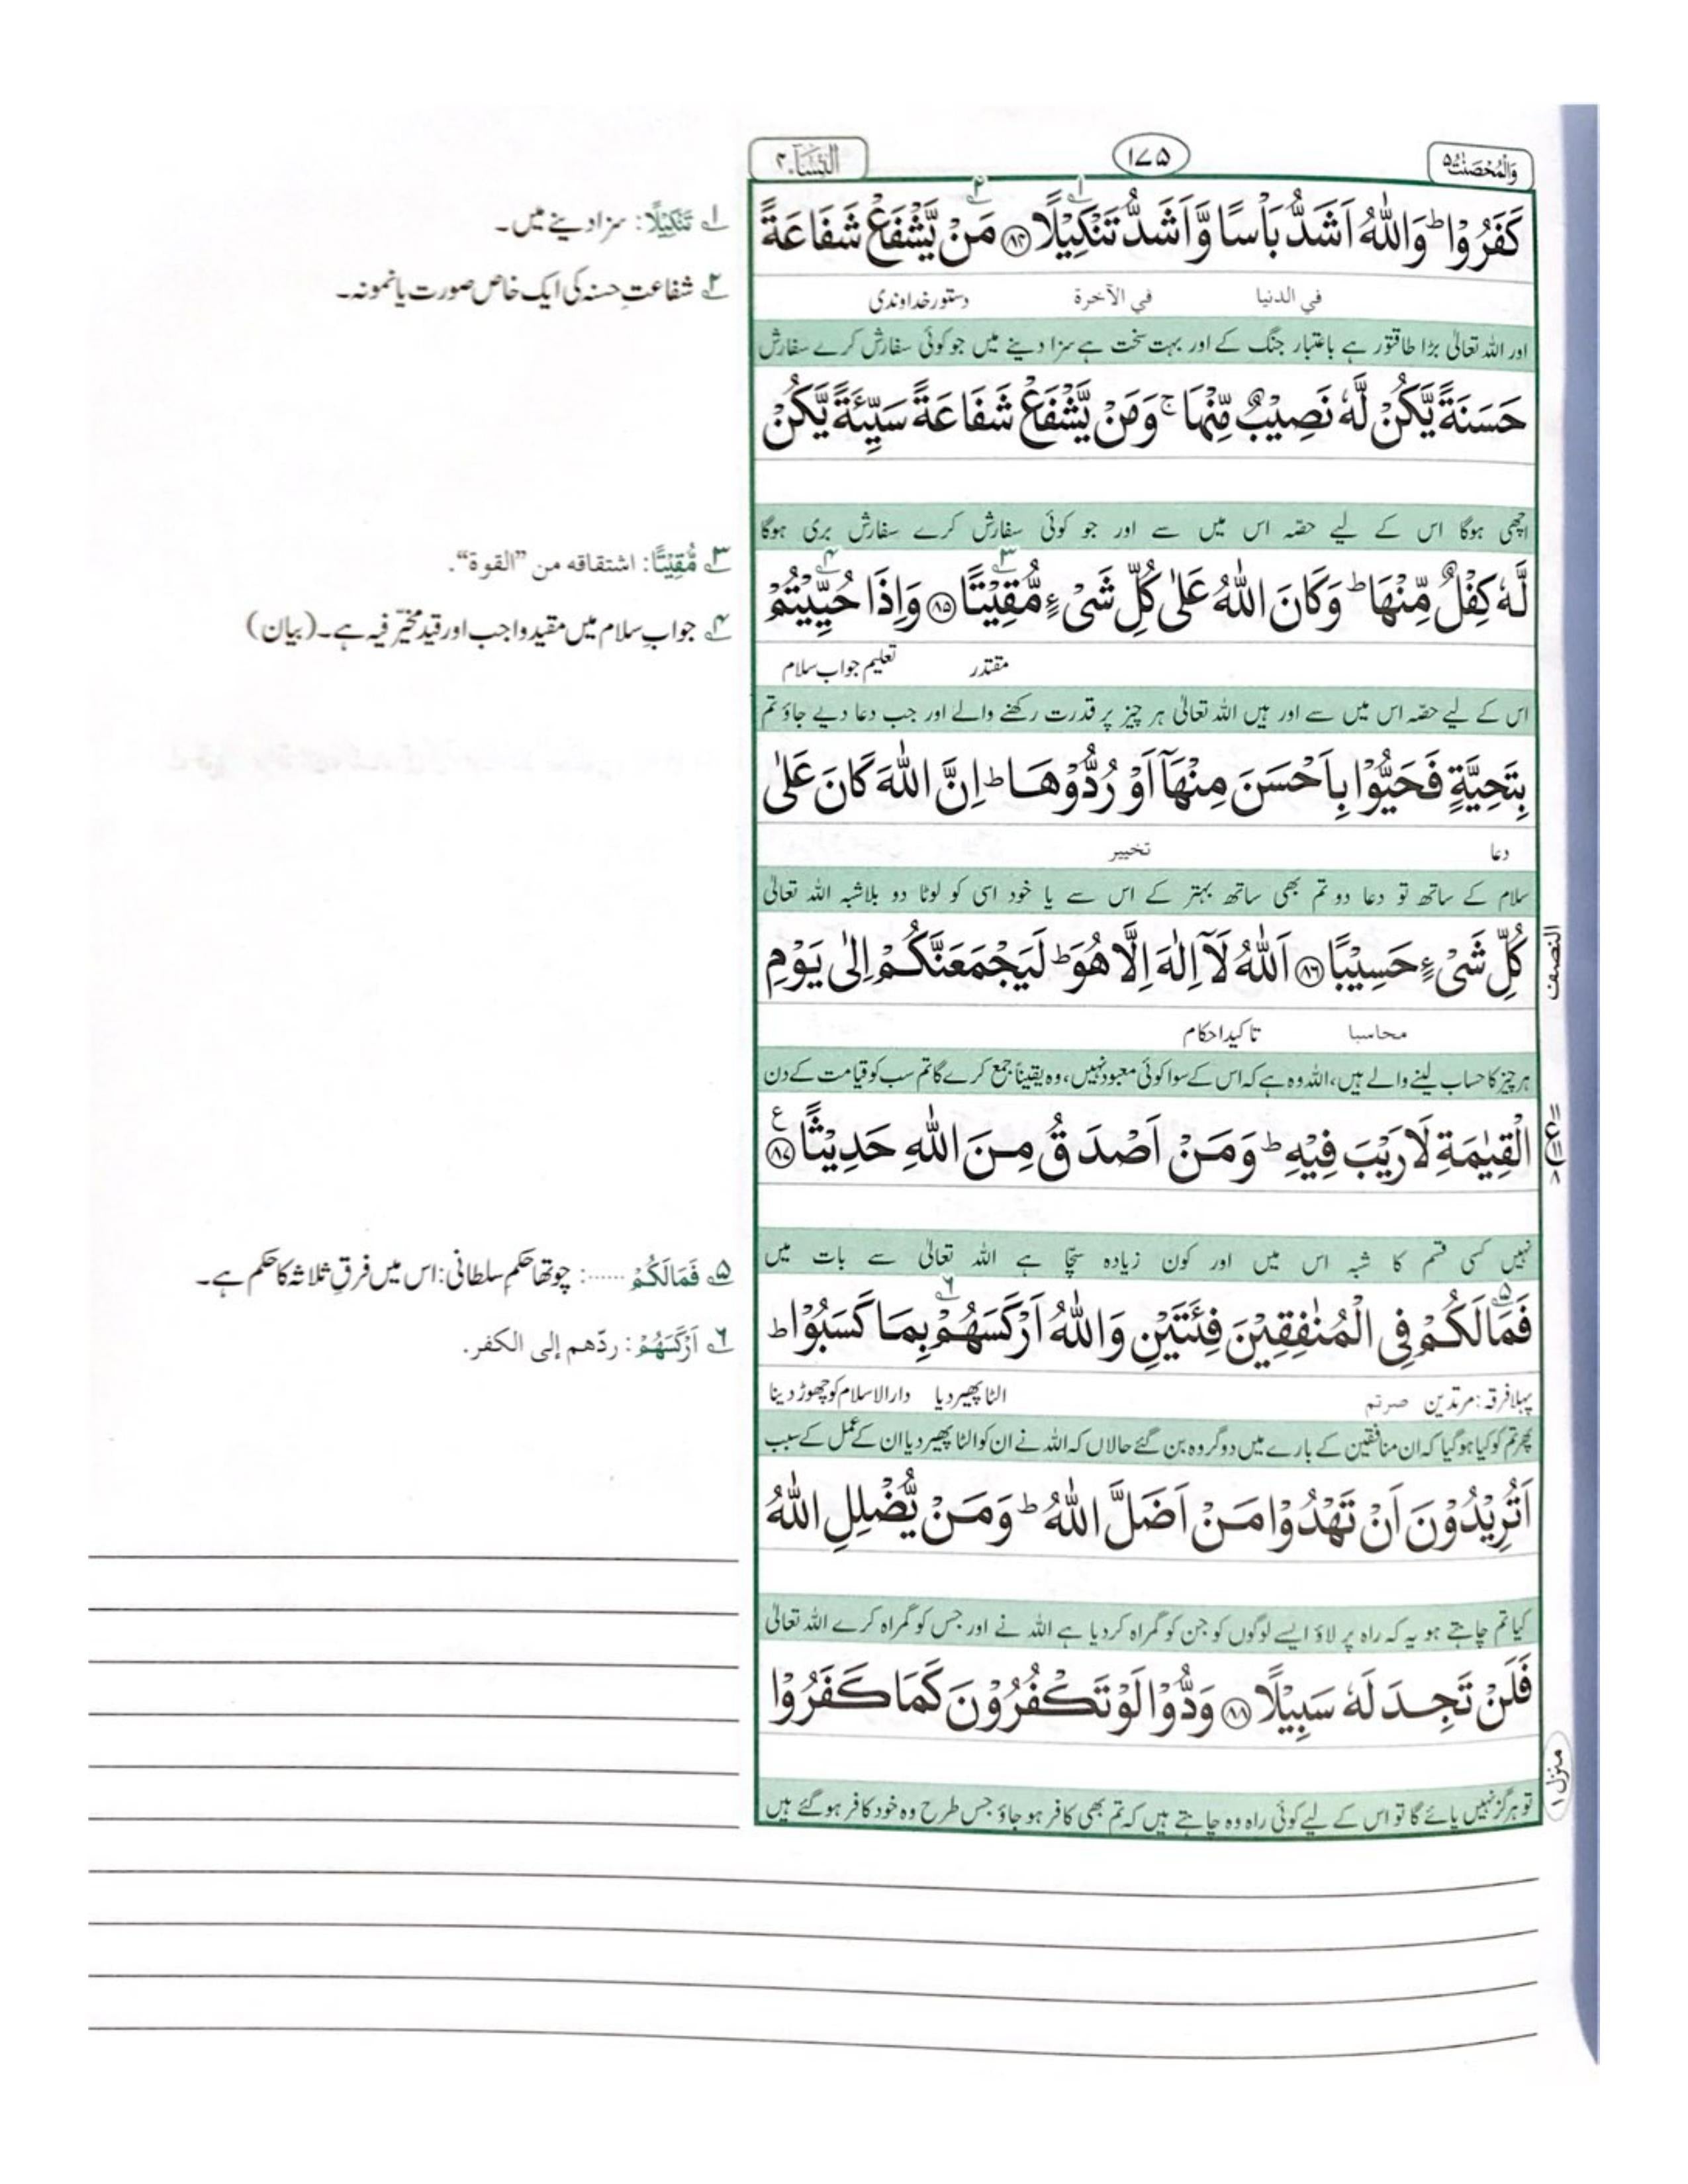 وَالْمُحْصَنٰتُ ۵
۱۷۵
النِّسَآء ۴
كَفَرُوْا ؕ وَاللّٰهُ اَشَدُّ بَاْسًا وَّاَشَدُّ تَنْكِيْلًا ۱ ﴿۸۴﴾ مَنْ ۲ يَّشْفَعْ شَفَاعَةً
في الدنيا في الآخرة دستور خداوندی
اور اللہ تعالیٰ بڑا طاقتور ہے باعتبار جنگ کے اور بہت سخت ہے سزا دینے میں جو کوئی سفارش کرے سفارش
حَسَنَةً يَّكُنْ لَّهٗ نَصِيْبٌ مِّنْهَا ۚ وَمَنْ يَّشْفَعْ شَفَاعَةً سَيِّئَةً يَّكُنْ
اچھی ہوگا اس کے لیے حصّہ اس میں سے اور جو کوئی سفارش کرے سفارش بری ہوگا
لَّهٗ كِفْلٌ مِّنْهَا ؕ وَكَانَ اللّٰهُ عَلٰى كُلِّ شَىْءٍ مُّقِيْتًا ۳ ﴿۸۵﴾ وَاِذَا حُيِّيْتُمْ ۴
مقتدر تعلیم جواب سلام
اس کے لیے حصّہ اس میں سے اور ہیں اللہ تعالیٰ ہر چیز پر قدرت رکھنے والے اور جب دعا دیے جاؤ تم
بِتَحِيَّةٍ فَحَيُّوْا بِاَحْسَنَ مِنْهَاۤ اَوْ رُدُّوْهَا ؕ اِنَّ اللّٰهَ كَانَ عَلٰى
دعا تخییر
سلام کے ساتھ تو دعا دو تم بھی ساتھ بہتر کے اس سے یا خود اسی کو لوٹا دو بلاشبہ اللہ تعالیٰ
كُلِّ شَىْءٍ حَسِيْبًا ﴿۸۶﴾ اَللّٰهُ لَاۤ اِلٰهَ اِلَّا هُوَ ؕ لَيَجْمَعَنَّكُمْ اِلٰى يَوْمِ
النصف
محاسبا تاکید احکام
ہر چیز کا حساب لینے والے ہیں، اللہ وہ ہے کہ اس کے سوا کوئی معبود نہیں، وہ یقیناً جمع کرے گا تم سب کو قیامت کے دن
الْقِيٰمَةِ لَا رَيْبَ فِيْهِ ؕ وَمَنْ اَصْدَقُ مِنَ اللّٰهِ حَدِيْثًا ﴿۸۷﴾ ع
۱۱ ع ۸
نہیں کسی قسم کا شبہ اس میں اور کون زیادہ سچّا ہے اللہ تعالیٰ سے بات میں
فَمَا لَكُمْ ۵ فِى الْمُنٰفِقِيْنَ فِئَتَيْنِ وَاللّٰهُ اَرْكَسَهُمْ ۶ بِمَا كَسَبُوْا ؕ
پہلا فرقہ: مرتدین صرتم الٹا پھیر دیا دارالاسلام کو چھوڑ دینا
پھر تم کو کیا ہو گیا کہ ان منافقین کے بارے میں دو گروہ بن گئے حالاں کہ اللہ نے ان کو الٹا پھیر دیا ان کے عمل کے سبب
اَتُرِيْدُوْنَ اَنْ تَهْدُوْا مَنْ اَضَلَّ اللّٰهُ ؕ وَمَنْ يُّضْلِلِ اللّٰهُ
کیا تم چاہتے ہو یہ کہ راہ پر لاؤ ایسے لوگوں کو جن کو گمراہ کر دیا ہے اللہ نے اور جس کو گمراہ کرے اللہ تعالیٰ
فَلَنْ تَجِدَ لَهٗ سَبِيْلًا ﴿۸۸﴾ وَدُّوْا لَوْ تَكْفُرُوْنَ كَمَا كَفَرُوْا
تو ہرگز نہیں پائے گا تو اس کے لیے کوئی راہ وہ چاہتے ہیں کہ تم بھی کافر ہو جاؤ جس طرح وہ خود کافر ہو گئے ہیں
منزل ۱
۱ تَنْكِيْلًا: سزا دینے میں۔
۲ شفاعتِ حسنہ کی ایک خاص صورت یا نمونہ۔
۳ مُّقِيْتًا: اشتقاقه من ”القوة“.
۴ جوابِ سلام میں مقید واجب اور قید مخیّر فیہ ہے۔ (بیان)
۵ فَمَا لَكُمْ ......: چوتھا حکمِ سلطانی: اس میں فرقِ ثلاثہ کا حکم ہے۔
۶ اَرْكَسَهُمْ: ردّهم إلى الكفر.